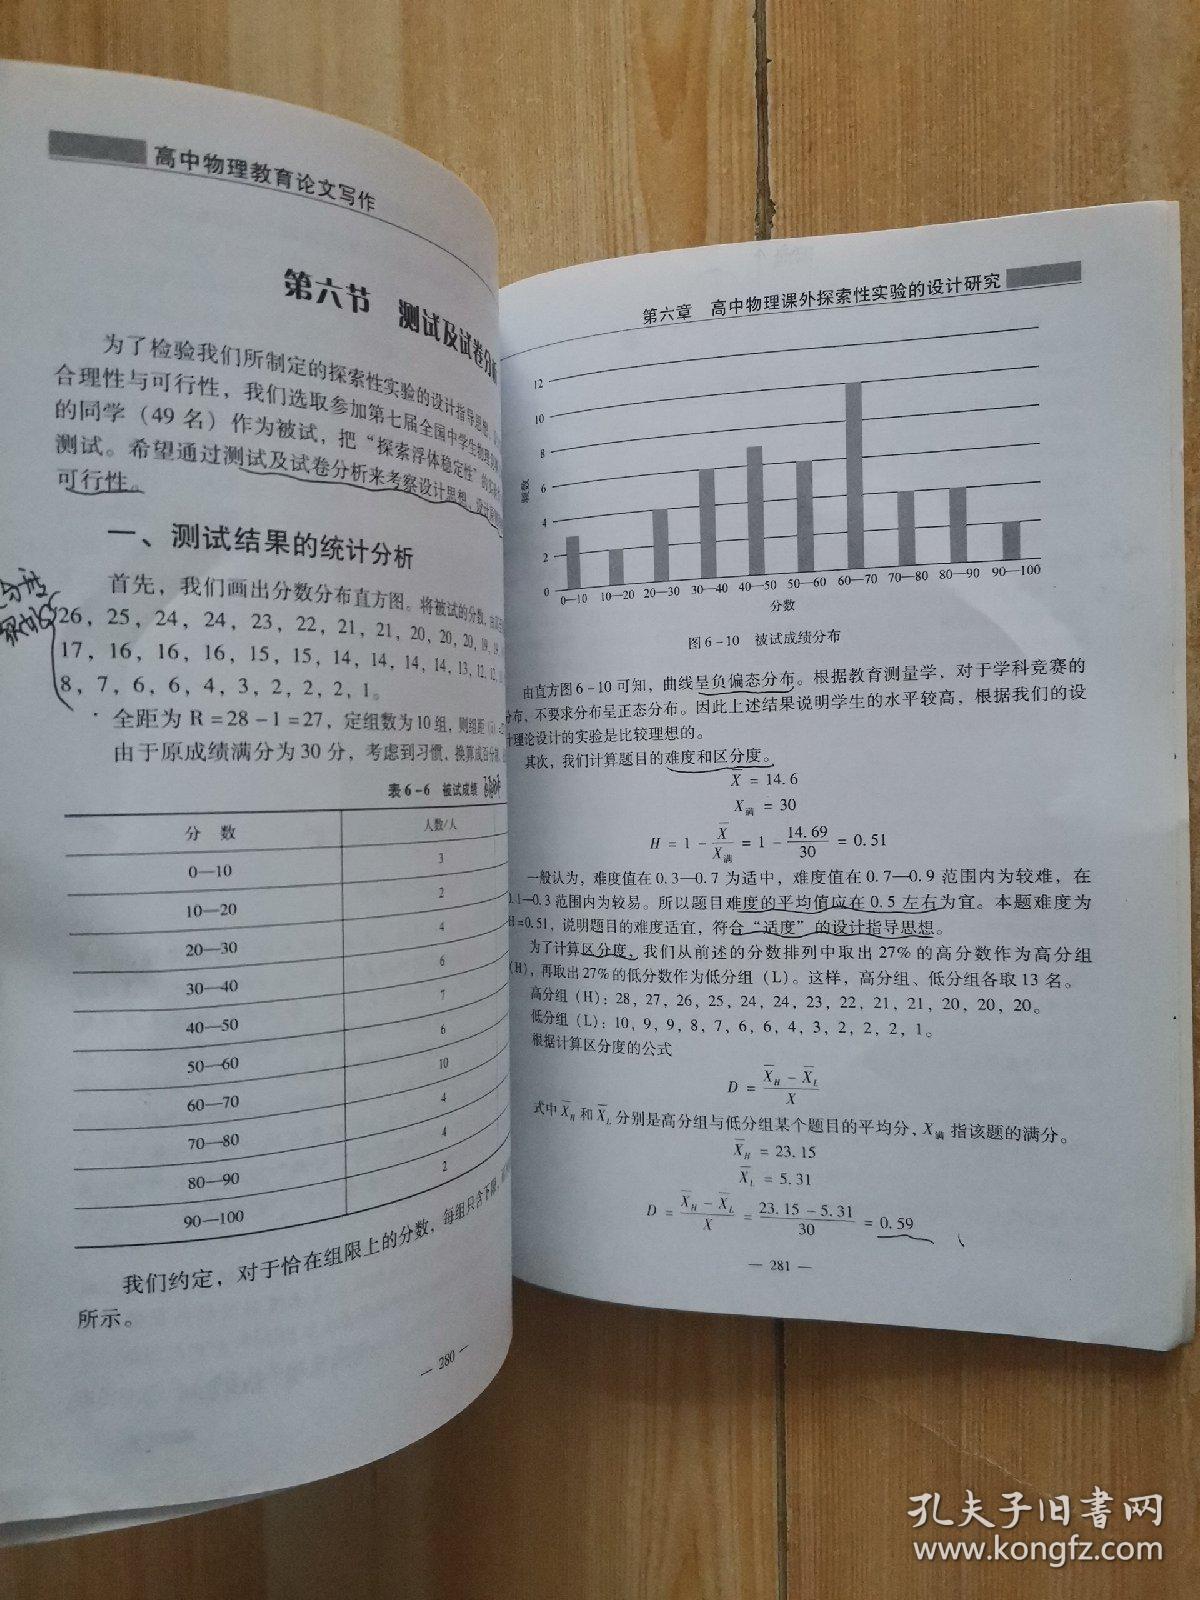 高中物理教育论文写作
第六节 测试及试卷分析
为了检验我们所制定的探索性实验的设计指导思想、
合理性与可行性，我们选取参加第七届全国中学生物理竞赛
的同学（49名）作为被试，把“探索浮体稳定性”的
测试。希望通过测试及试卷分析来考察设计思想、设计
可行性。
一、测试结果的统计分析
首先，我们画出分数分布直方图。将被试的分数，
26，25，24，24，23，22，21，21，20，20，20，19，19，
17，16，16，16，15，15，14，14，14，14，13，12，12，
8，7，6，6，4，3，2，2，2，1。
全距为 R=28-1=27，定组数为10组，则组距（i）
由于原成绩满分为30分，考虑到习惯，换算成百分制，
表6-6 被试成绩
分 数 人数/人
0—10 3
10—20 2
20—30 4
30—40 6
40—50 7
50—60 6
60—70 10
70—80 4
80—90 4
90—100 2
我们约定，对于恰在组限上的分数，每组只含下限，
所示。
— 280 —
第六章 高中物理课外探索性实验的设计研究
12
10
8
6
4
2
0
频数
0—10 10—20 20—30 30—40 40—50 50—60 60—70 70—80 80—90 90—100
分数
图6-10 被试成绩分布
由直方图6-10可知，曲线呈负偏态分布。根据教育测量学，对于学科竞赛的
分布，不要求分布呈正态分布。因此上述结果说明学生的水平较高，根据我们的设
计理论设计的实验是比较理想的。
其次，我们计算题目的难度和区分度。
X = 14.6
X满 = 30
H = 1 - X̄/X满 = 1 - 14.69/30 = 0.51
一般认为，难度值在0.3—0.7为适中，难度值在0.7—0.9范围内为较难，在
0.1—0.3范围内为较易。所以题目难度的平均值应在0.5左右为宜。本题难度为
H=0.51，说明题目的难度适宜，符合“适度”的设计指导思想。
为了计算区分度，我们从前述的分数排列中取出27%的高分数作为高分组
（H），再取出27%的低分数作为低分组（L）。这样，高分组、低分组各取13名。
高分组（H）：28，27，26，25，24，24，23，22，21，21，20，20，20。
低分组（L）：10，9，9，8，7，6，6，4，3，2，2，2，1。
根据计算区分度的公式
D = (X̄H - X̄L)/X
式中X̄H和X̄L分别是高分组与低分组某个题目的平均分，X满指该题的满分。
X̄H = 23.15
X̄L = 5.31
D = (X̄H - X̄L)/X = (23.15 - 5.31)/30 = 0.59
— 281 —
孔夫子旧书网
www.kongfz.com